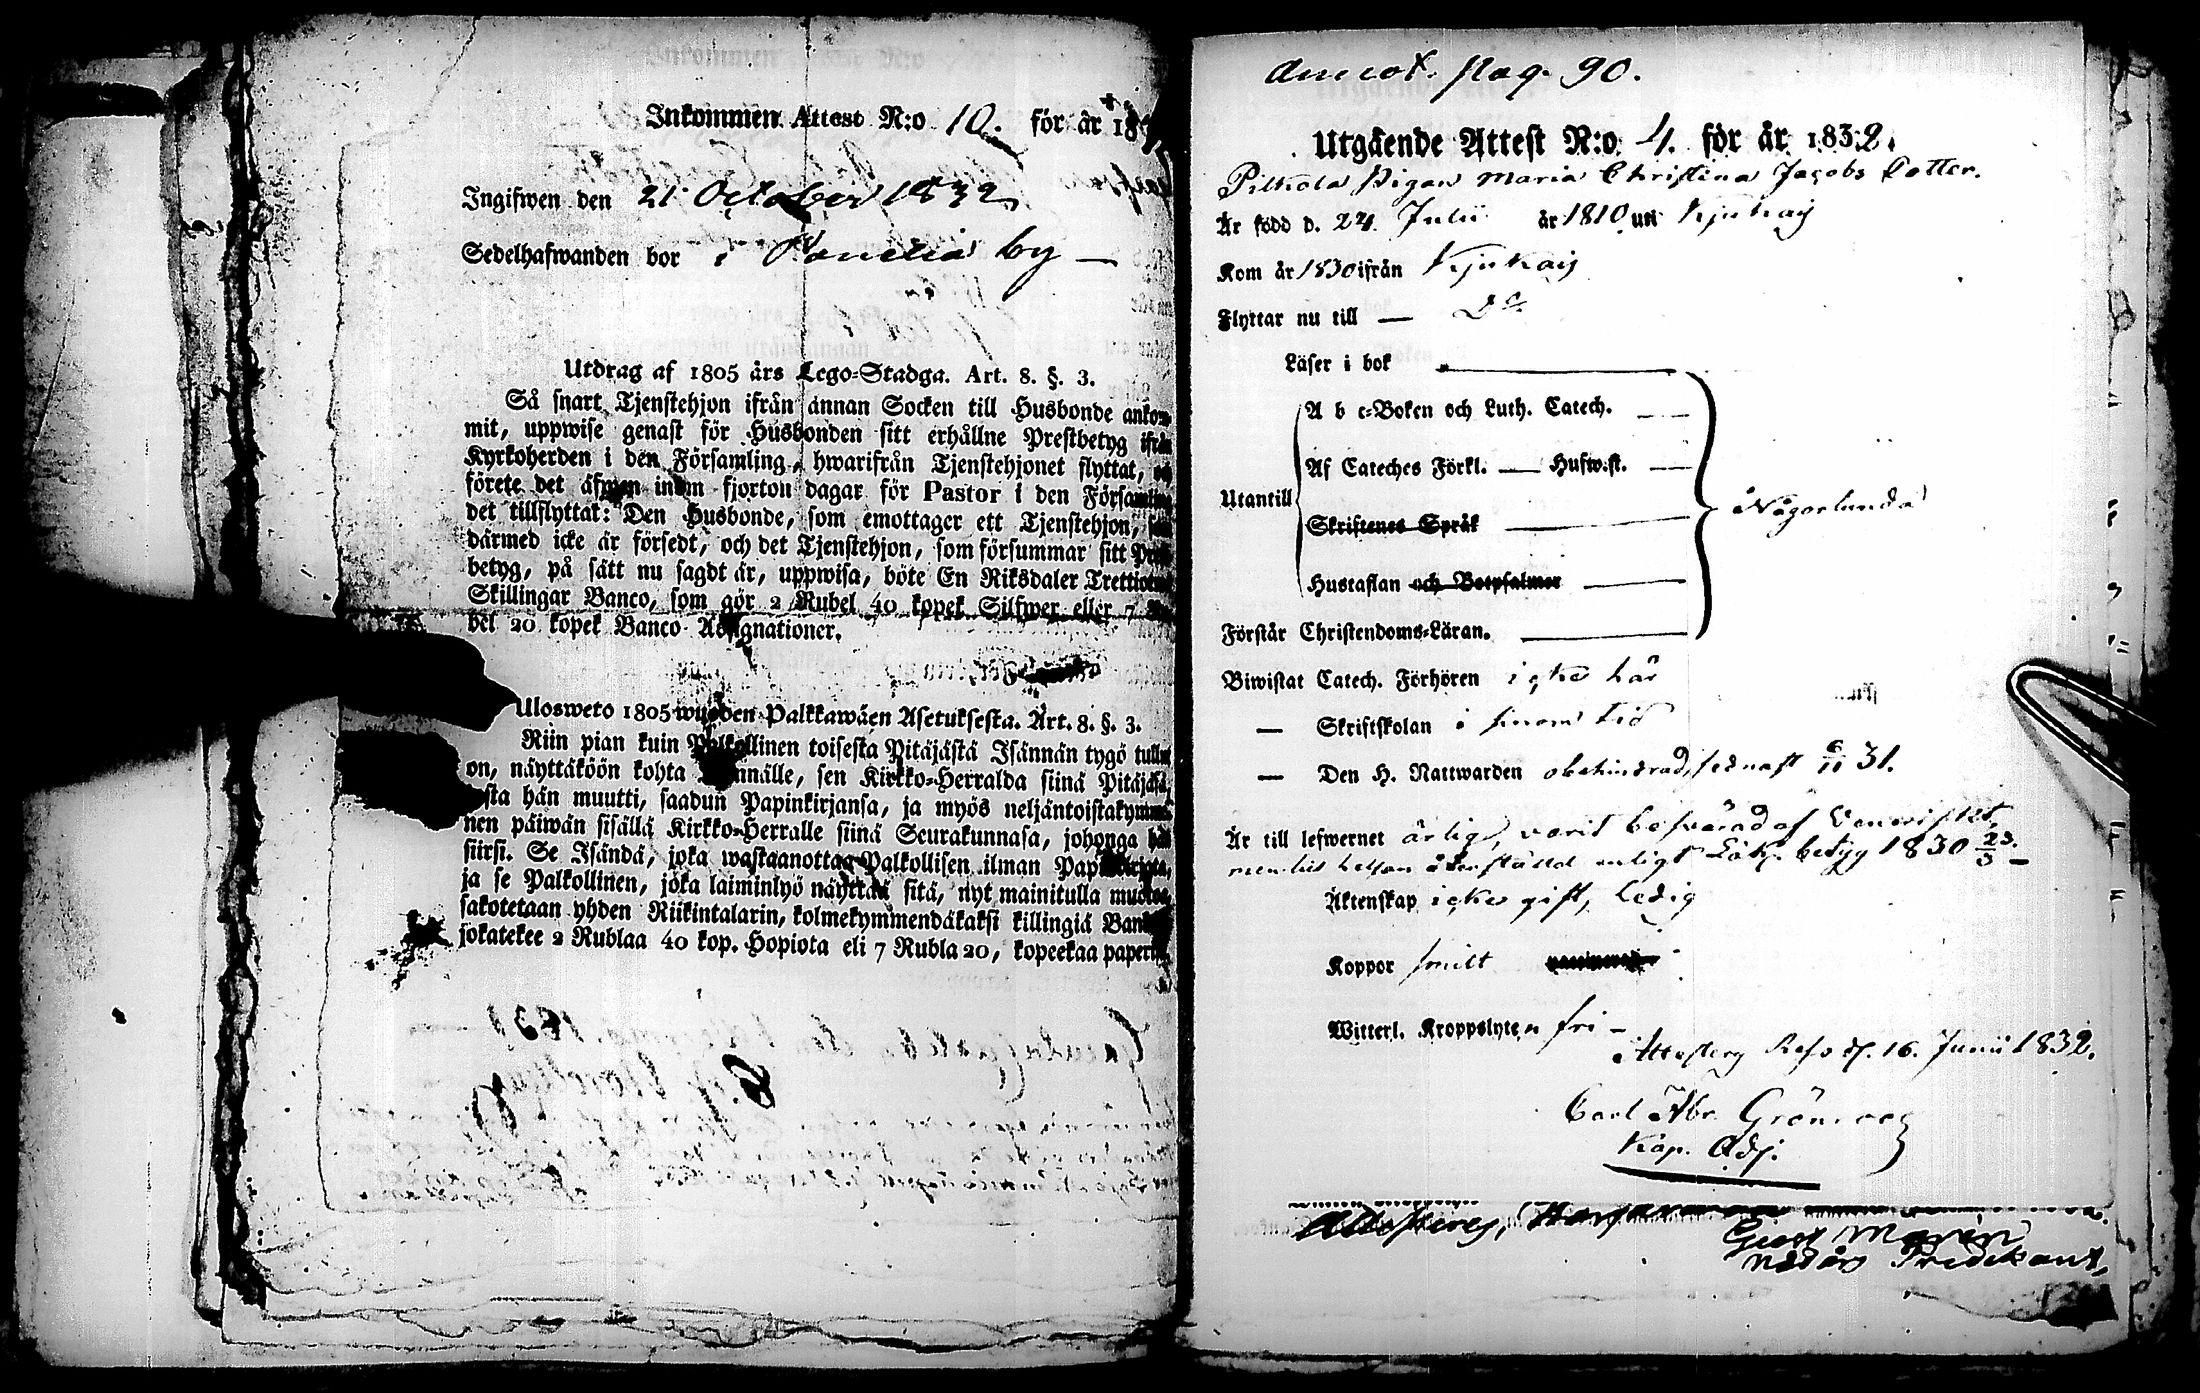 Inkommen Attest N:o 10. för år 18
Ingifwen den 21 October 1832
Sedelhafwanden bor i Panelia by —
Utdrag af 1805 års Lego-Stadga. Art. 8. §. 3.
Så snart Tjenstehjon ifrån annan Socken till Husbonde ankom-
mit, uppwise genast för Husbonden sitt erhållne Prestbetyg ifrån
Kyrkoherden i den Församling, hwarifrån Tjenstehjonet flyttat, och
förete det äfwen inom fjorton dagar för Pastor i den Församling
det tillflyttat: Den Husbonde, som emottager ett Tjenstehjon, som
därmed icke är försedt, och det Tjenstehjon, som försummar sitt Prest-
betyg, på sätt nu sagdt är, uppwisa, böte En Riksdaler Trettiotwå
Skillingar Banco, som gör 2 Rubel 40 kopek Silfwer eller 7 Ru-
bel 20 kopek Banco Assignationer.
Ulosweto 1805 wuoden Palkkawäen Asetuksesta. Art. 8. §. 3.
Niin pian kuin Palkollinen toisesta Pitäjästä Isännän tygö tullut
on, näyttäköön kohta Isännälle, sen Kirkko-Herralda siinä Pitäjäsä,
josta hän muutti, saadun Papinkirjansa, ja myös neljäntoistakymme-
nen päiwän sisällä Kirkko-Herralle siinä Seurakunnasa, johonga hän
siirsi. Se Isändä, joka wastaanottaa Palkollisen ilman Papinkirjata,
ja se Palkollinen, joka laiminlyö näyttää sitä, nyt mainitulla muotoa,
sakotetaan yhden Riikintalarin, kolmekymmendäkaksi killingiä Banko,
joka tekee 2 Rublaa 40 kop. Hopiota eli 7 Rubla 20, kopeekaa paperis.
Annot. pag. 90.
Utgående Attest N:o 4. för år 1832.
Pilkola Pigan Maria Christina Jacobs Dotter.
Är född d. 24. Julii år 1810 uti Kjukais
Kom år 1830 ifrån Kjukais
Flyttar nu till — Do
Läser i bok
A b c-Boken och Luth. Catech.
Af Cateches Förkl. — Hufw.st. —
Utantill
Skriftenes Språk
Någorlunda
Hustaflan och Botpsalmer
Förstår Christendoms-Läran.
Biwistat Catech. Förhören icke här
— Skriftskolan i sinom tid
— Den H. Nattwarden obehindrad, sednast 6/11 31.
Är till lefwernet ärlig, varit besvärad af Veneriskt,
men till helsan återställd enligt Läk. betyg 1830 23/3 —
Äktenskap icke gift, ledig
Koppor smitt
Witterl. Kroppslyten fri —
Attesterg Refsö d. 16. Junii 1832.
Carl Abr. Grönroos
Kap. Adj.
Attesterej,
Gust Moren
Predikant,